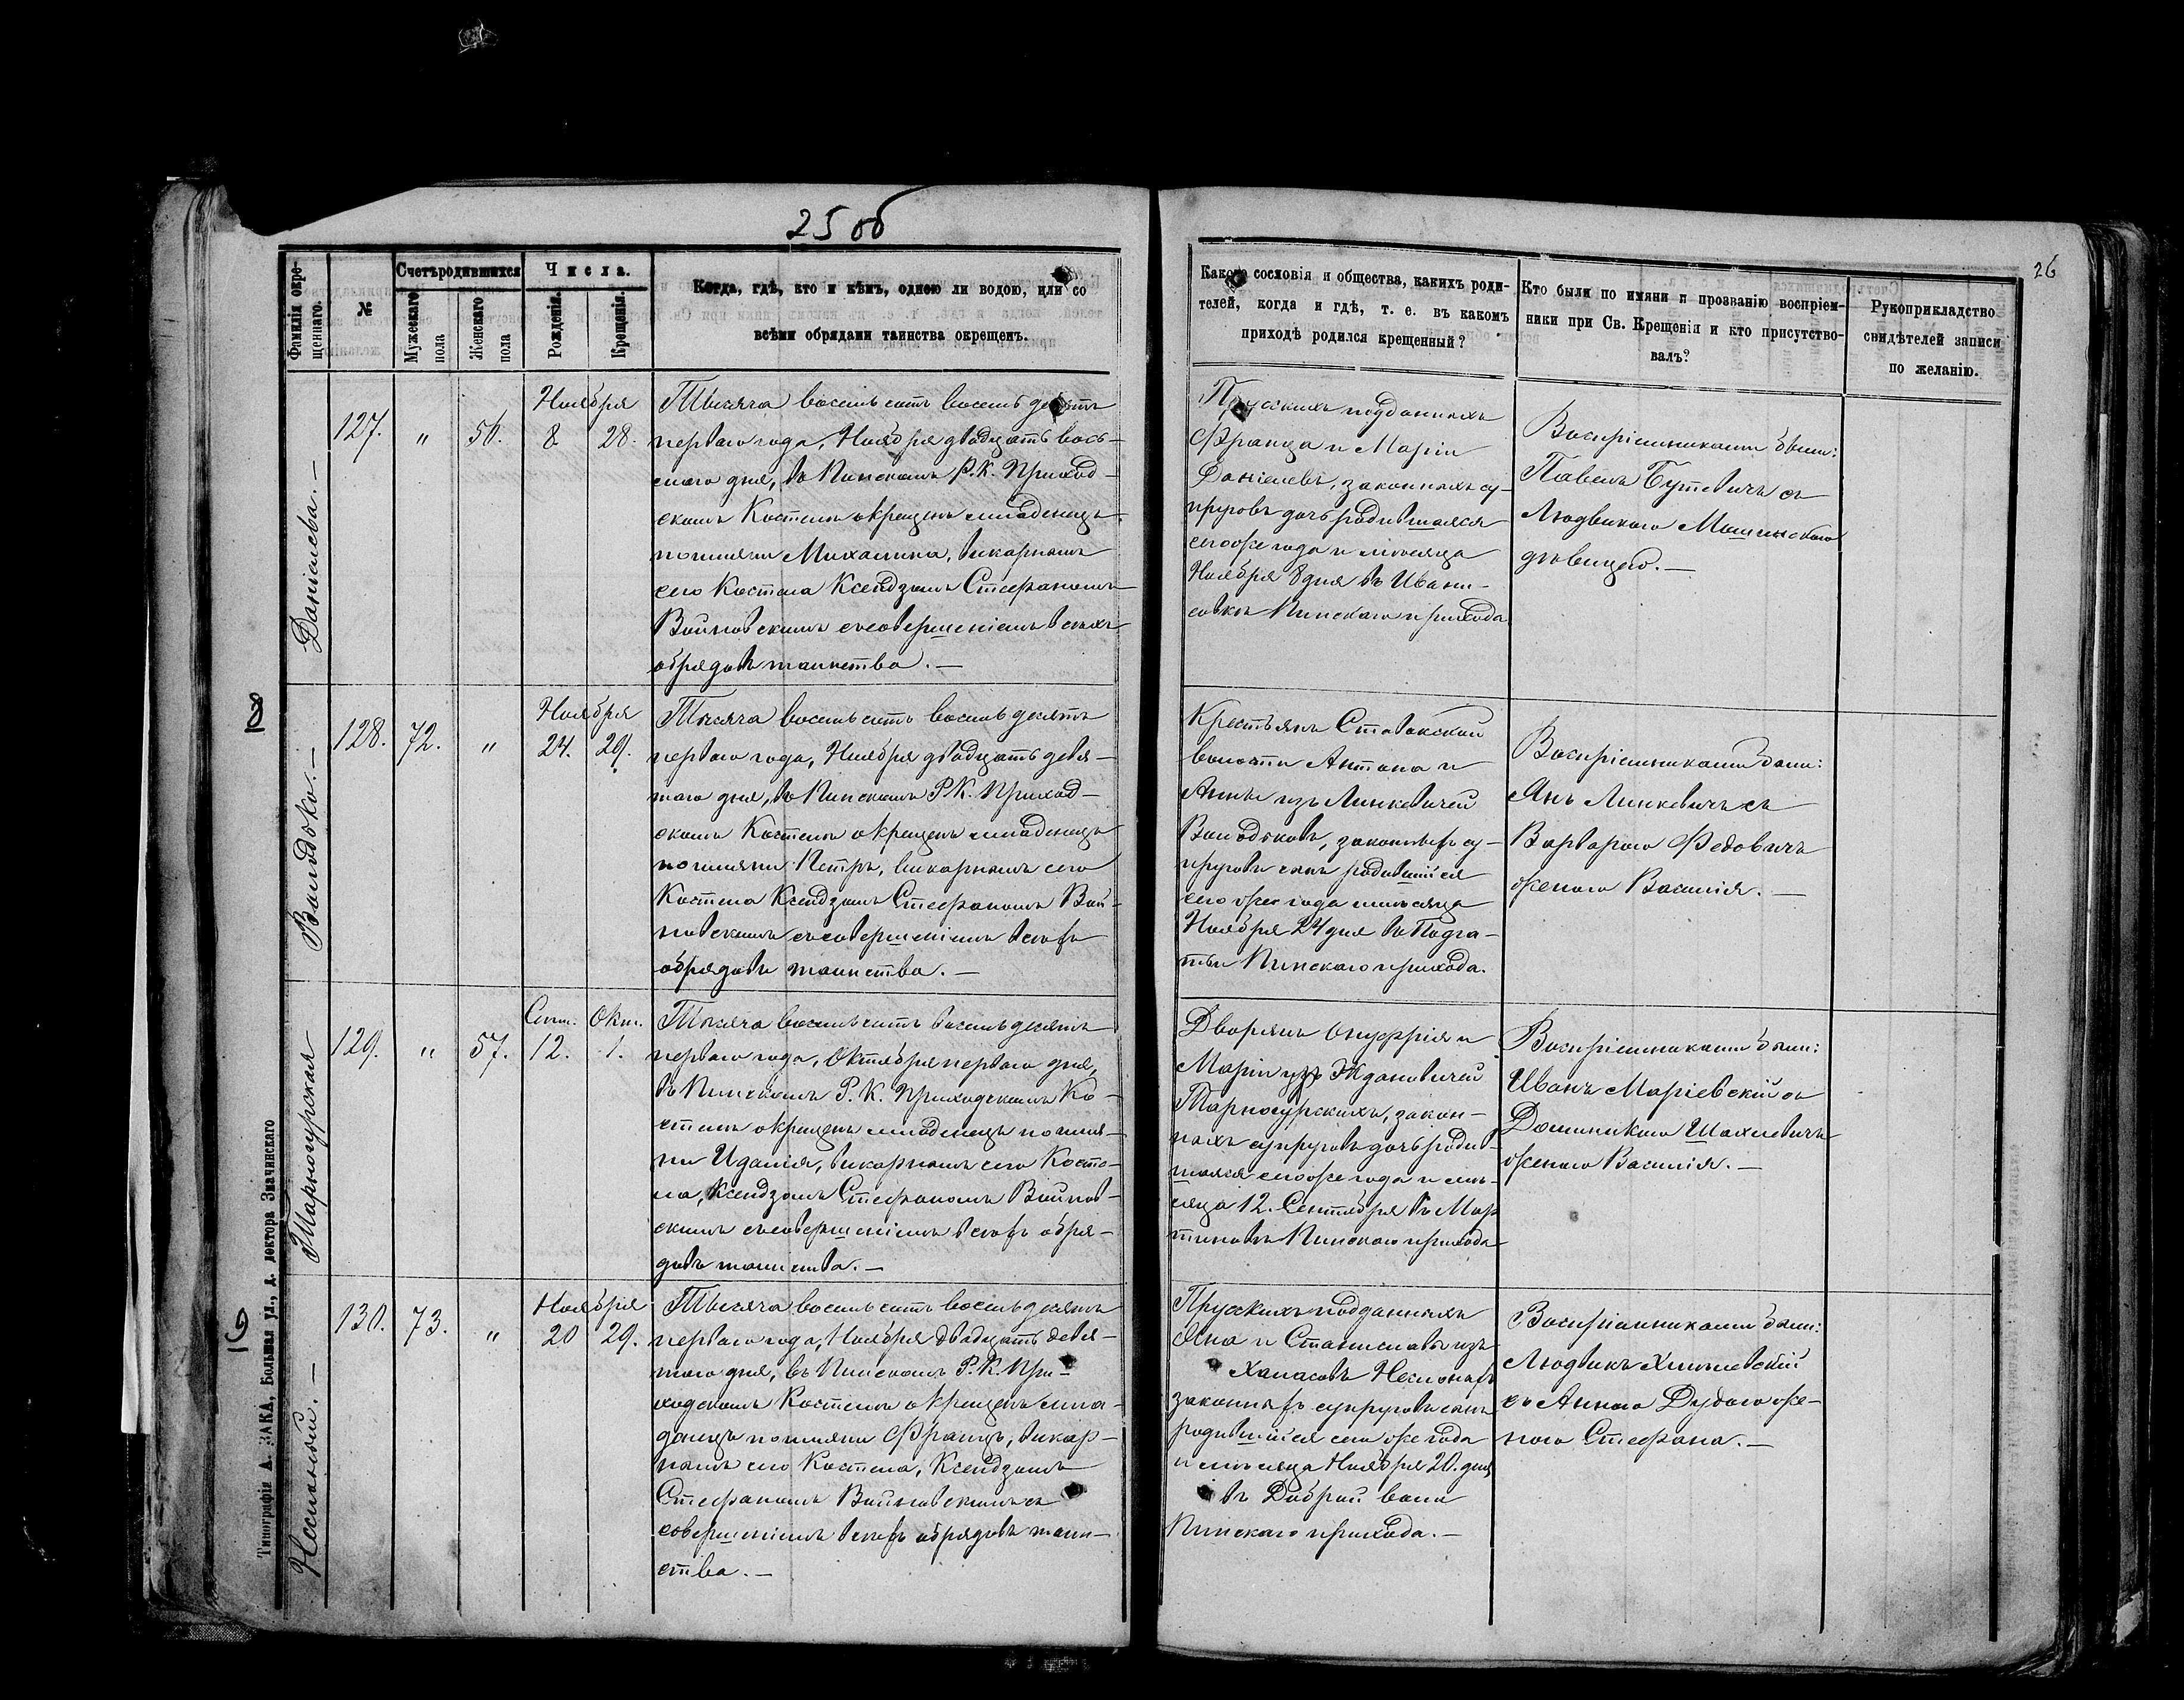 25 об
26
Фамилія окре-
щеннаго.
№
Счетъ родившихся
Мужескаго
пола
Женскаго
пола
Числа.
Рожденія.
Крещенія.
Когда, гдѣ, кто и кѣмъ, одною ли водою, или со
всѣми обрядами таинства окрещенъ.
Какого сословія и общества, какихъ роди-
телей, когда и гдѣ, т. е. въ какомъ
приходѣ родился крещенный?
Кто были по имяни и прозванію воспріем-
ники при Св. Крещенія и кто присутство-
валъ?
Рукоприкладство
свидѣтелей записи
по желанію.
Даніелева. —
127.
"
56.
Ноября
8. 28.
Тысяча восемьсотъ восемьдесятъ
перваго года, Ноября двадцать вось-
маго дня, въ Пинскомъ Р. К. Приход-
скомъ Костелѣ окрещенъ младенецъ
по имяни Михалина, викарнымъ
сего Костела Ксендзомъ Стефаномъ
Войновскимъ съ совершеніемъ всѣхъ
обрядовъ таинства. —
Прусскихъ подданныхъ
Франца и Маріи
Даніелевъ, законныхъ су-
пруговъ дочь родившаяся
сего же года и мѣсяца
Ноября 8 дня въ Ивани-
совкѣ Пинскаго прихода
Воспріемниками были:
Павелъ Бутевичъ съ
Людвикою
дѣвицею. —
Володько. —
128.
72.
"
Ноября
24. 29.
Тысяча восемьсотъ восемьдесятъ
перваго года, Ноября двадцать девя-
таго дня, въ Пинскомъ Р. К. Приход-
скомъ Костелѣ окрещенъ младенецъ
по имяни Петръ, викарнымъ сего
Костела Ксендзомъ Стефаномъ Вой-
новскимъ съ совершеніемъ всѣхъ
обрядовъ таинства. —
Крестьянъ Ставокской
волости Антона и
Анны изъ Линкевичей
Володьковъ, законныхъ су-
пруговъ сынъ родившійся
сего же года и мѣсяца
Ноября 24 дня въ Подга-
тьи Пинскаго прихода.
Воспріемниками были:
Янъ Линкевичъ съ
Варварою Федовичъ
женою Василія. —
Тарногурская
129.
"
57.
Сент. Окт.
12. 1.
Тысяча восемьсотъ восемьдесятъ
перваго года, Октября перваго дня,
въ Пинскомъ Р. К. Приходскомъ Ко-
стелѣ окрещенъ младенецъ по имя-
ни Идалія, викарнымъ сего Косте-
ла, Ксендзомъ Стефаномъ Войнов-
скимъ съ совершеніемъ всѣхъ обря-
довъ таинства. —
Дворянъ Онуфрія и
Маріи изъ Ждановичей
Тарногурскихъ, закон-
ныхъ супруговъ дочь родив-
шаяся сего же года и мѣ-
сяца 12. Сентября въ Мар
тиновѣ Пинскаго прихода
Воспріемниками были:
Иванъ Маріевскій съ
Доминикою Шахлевичъ
женою Василія. —
130.
73.
"
Ноября
20 29.
Тысяча восемьсотъ восемьдесятъ
перваго года, Ноября двадцать девя-
таго дня, въ Пинскомъ Р. К. При-
ходскомъ Костелѣ окрещенъ мла-
денецъ по имяни Францъ, викар-
нымъ сего Костела, Ксендзомъ
Стефаномъ Войновскимъ съ
совершеніемъ всѣхъ обрядовъ таин-
ства. —
Прусскихъ подданныхъ
Яна и Станиславы изъ
законныхъ супруговъ сынъ
родившійся сего же года
и мѣсяца Ноября 20. дня
въ Доброй воли
Пинскаго прихода. —
Воспріемниками были:
Людвикъ
съ Анною Дудою же-
ною Стефана. —
Типографія Д. ЗАКА, Большая ул., д. доктора Значинскаго